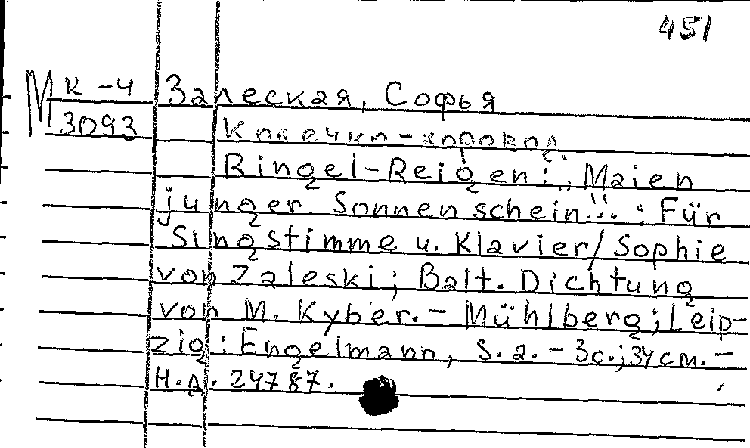 451
М к-4 Залеская, Софья
3093 Колечко-хоровод
Ringel-Reigen: "Maien
junger Sonnenschein!!" : Für
Singstimme u. Klavier/Sophie
von Zaleski; Balt. Dichtung
von M. Kyber. - Mühlberg; Leip-
zig: Engelmann, S. a. - 3с.; 34см. -
Н.д. 24787.